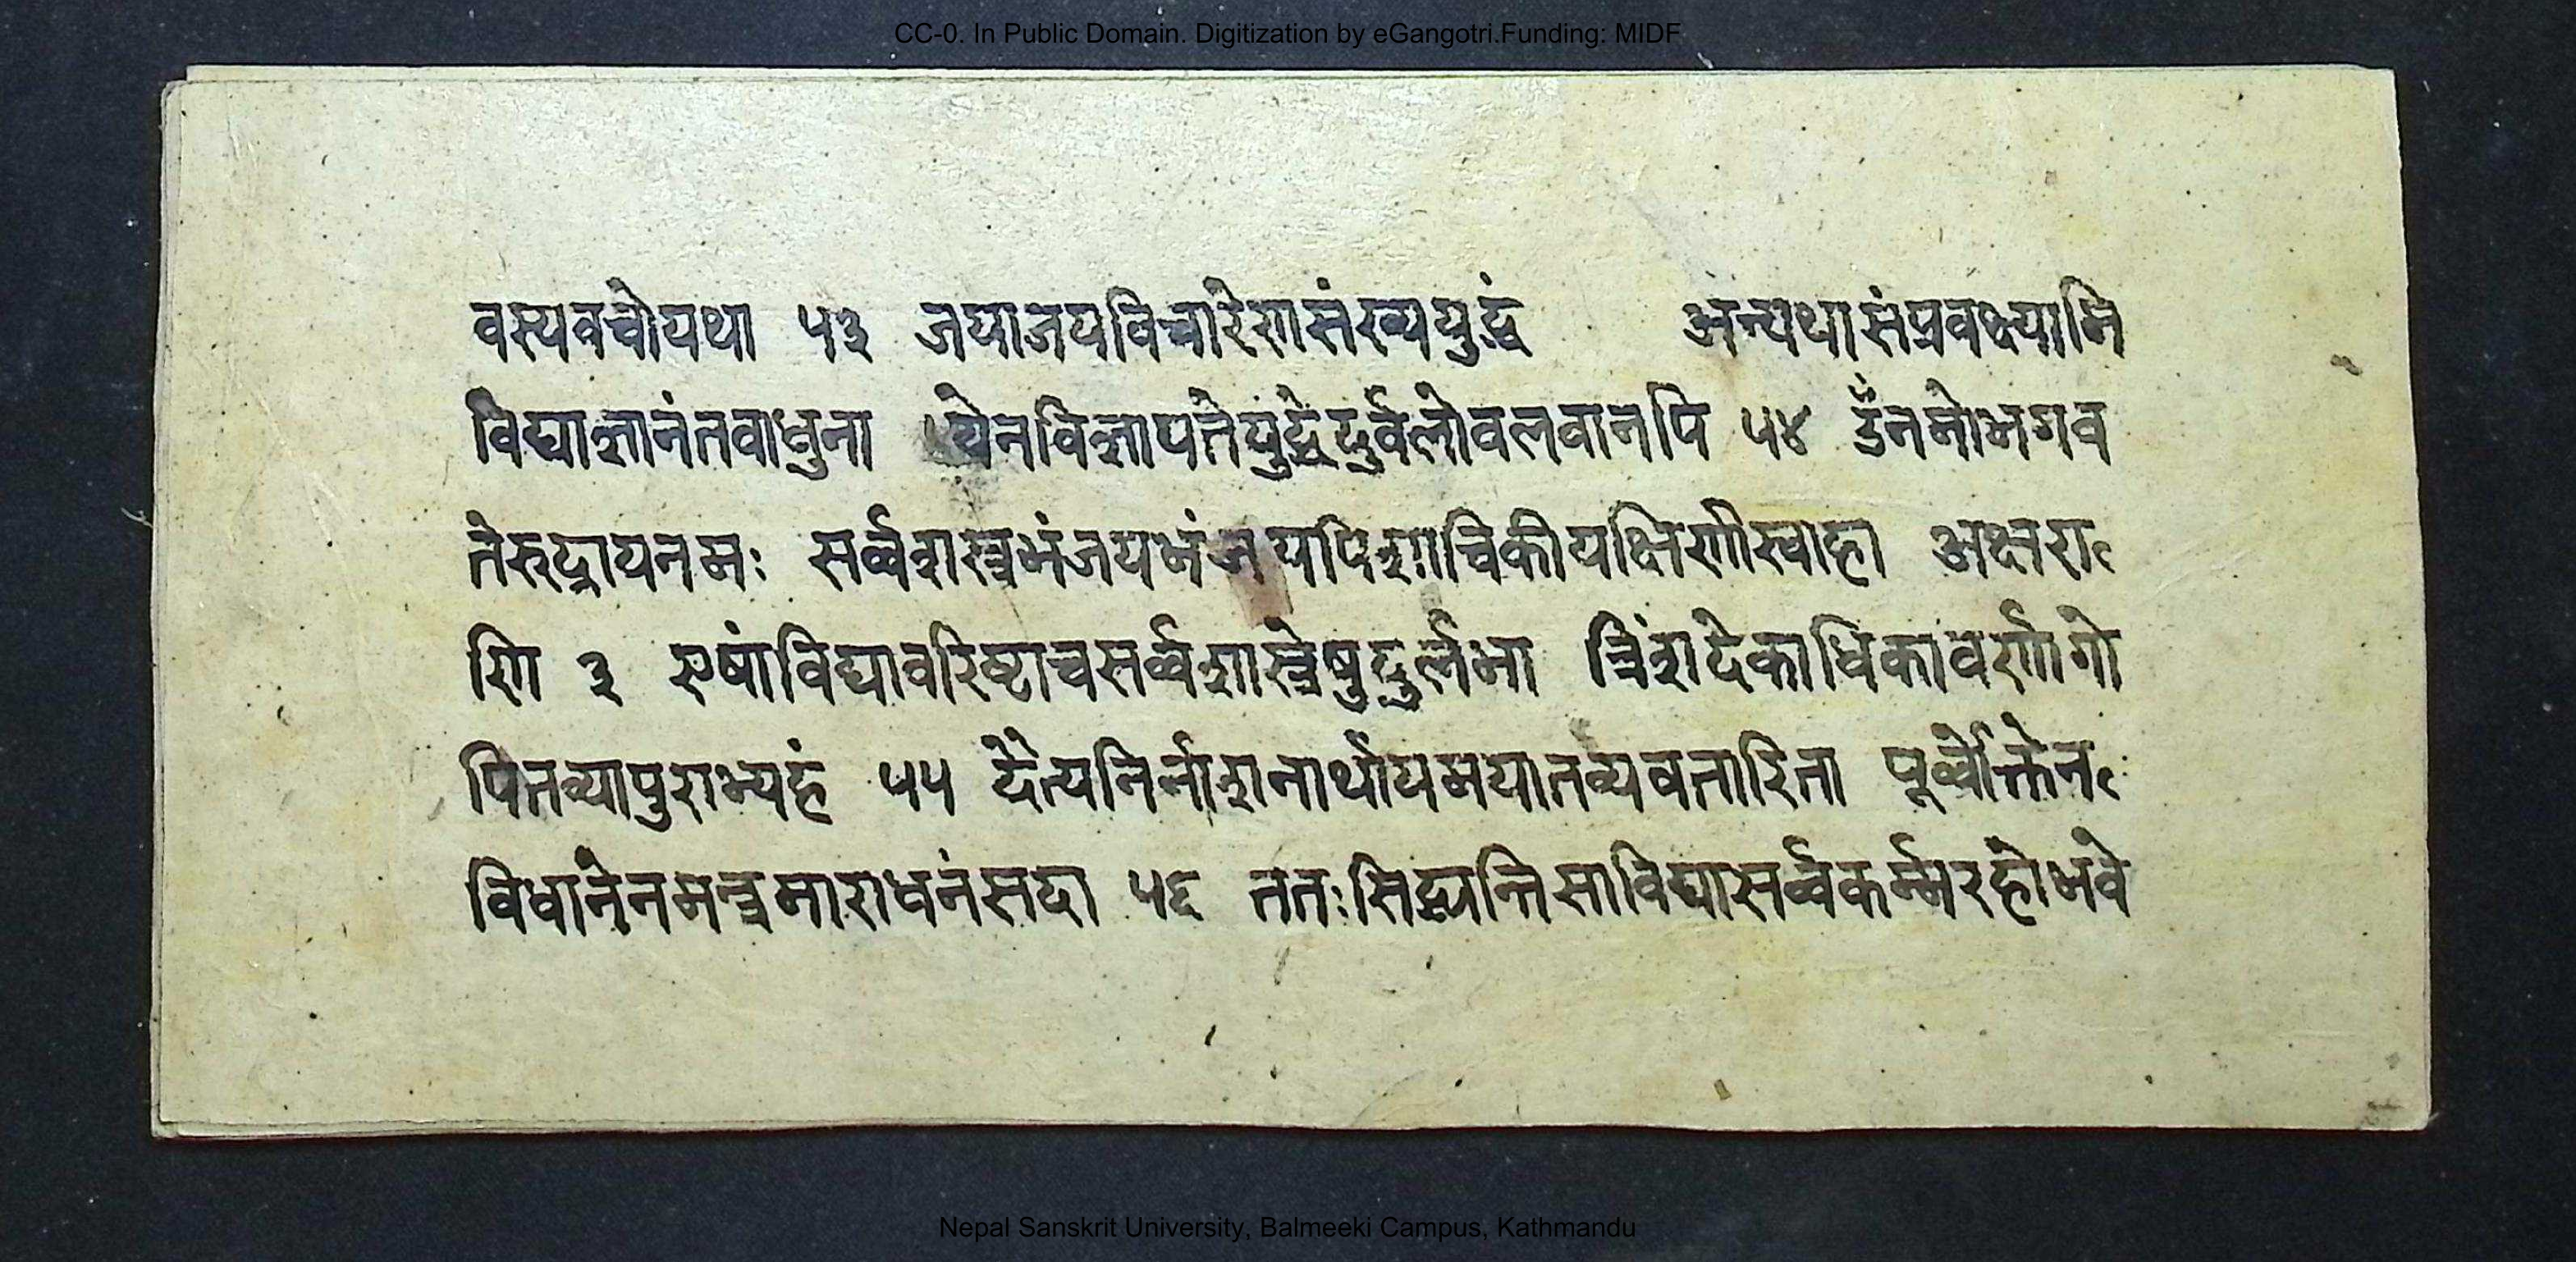 CC-0. In Public Domain. Digitization by eGangotri.Funding: MIDF
वस्यवचोयथा ५३ जयाजयविचारेणसंख्ययुद्धं अन्यथासंप्रवक्ष्यामि
विद्याज्ञानंतवाधुना येनविज्ञापतेयुद्धेदुर्वलोवलवानपि ५४ ॐनमोभगव
तेरुद्रायनमः सर्व्वशस्त्रभंजयभंजयपिशाचिकीयक्षिणीस्वाहा अक्षरा
णि ३ एषांविद्यावरिष्टाचसर्व्वशास्त्रेषुदुर्लभा त्रिंशदेकाधिकावर्णागो
पितव्यापुराभ्यहं ५५ दैत्यनिर्नाशनार्थायमयातव्यवतारिता पूर्व्वोक्तेन
विधानेनमन्त्रमाराधनंसदा ५६ ततःसिद्ध्यन्तिसाविद्यासर्व्वकर्म्मरहोभवे
Nepal Sanskrit University, Balmeeki Campus, Kathmandu